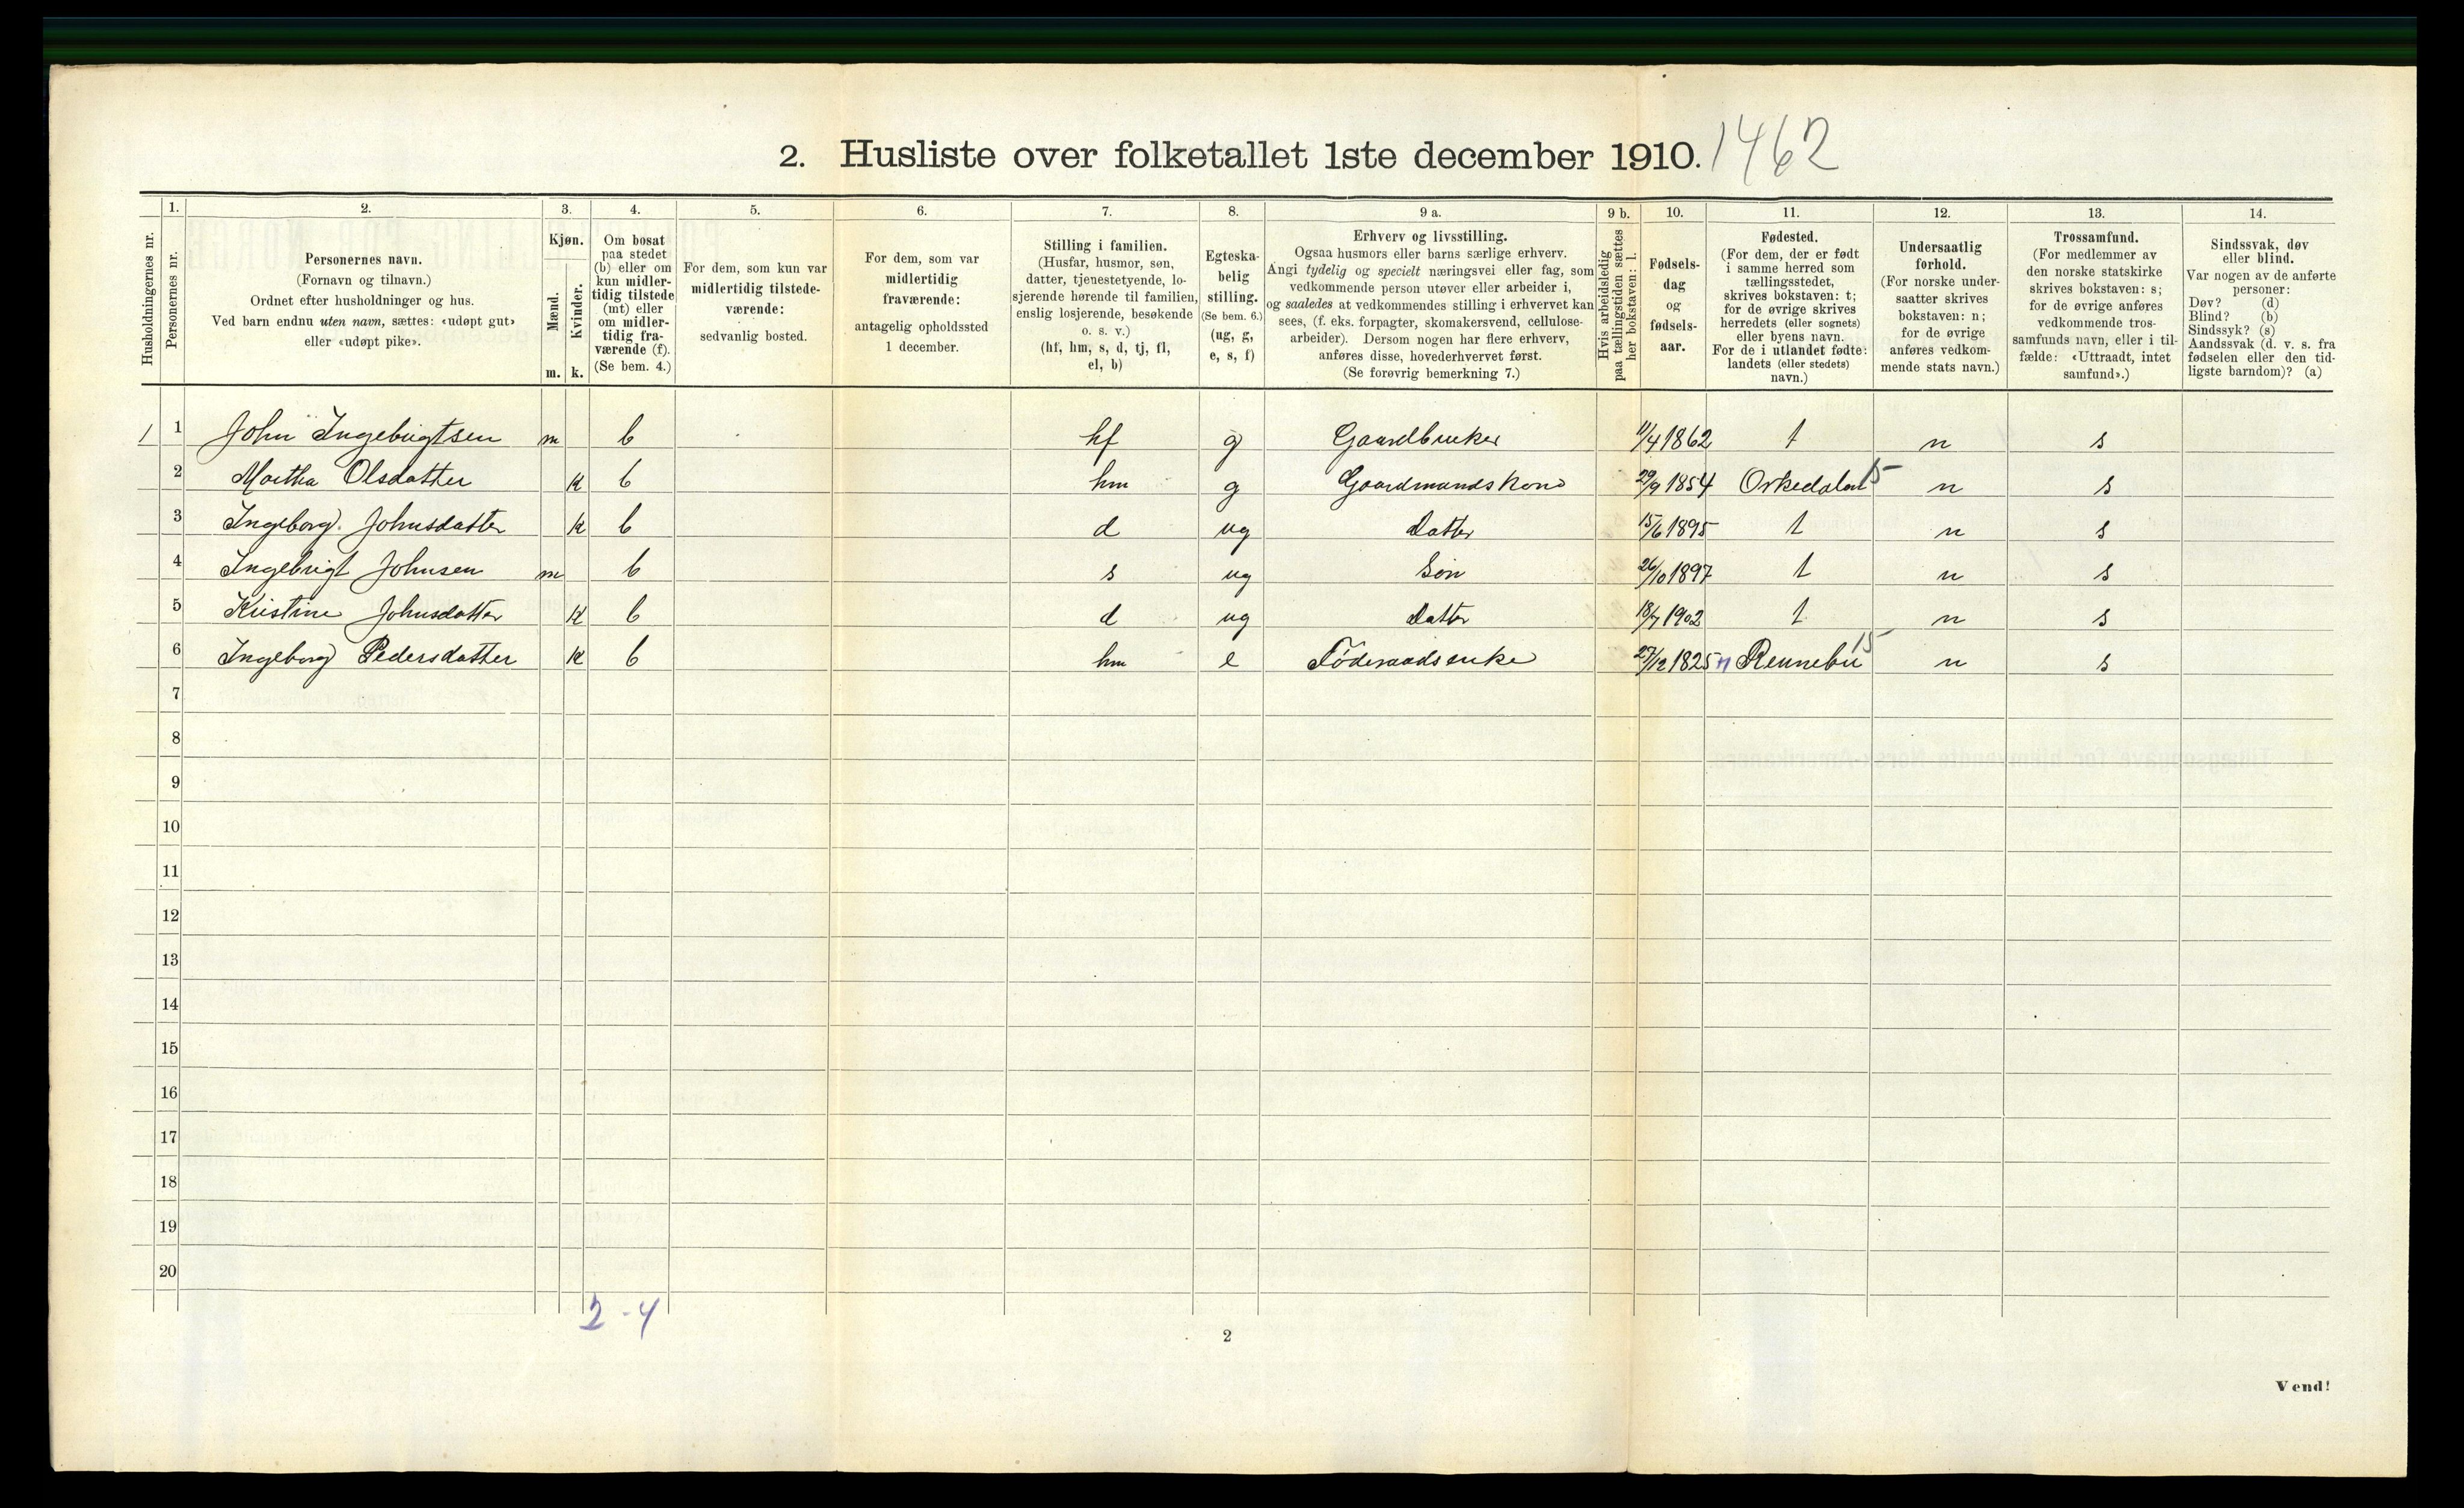 2. Husliste over folketallet 1ste december 1910. 1462
1. 2. 3. 4. 5. 6. 7. 8. 9 a. 9 b. 10. 11. 12. 13. 14.
Husholdningernes nr.
Personernes nr.
Personernes navn.
(Fornavn og tilnavn.)
Ordnet efter husholdninger og hus.
Ved barn endnu uten navn, sættes: «udøpt gut»
eller «udøpt pike».
Kjøn.
Mænd.
Kvinder.
m. k.
Om bosat
paa stedet
(b) eller om
kun midler-
tidig tilstede
(mt) eller
om midler-
tidig fra-
værende (f).
(Se bem. 4.)
For dem, som kun var
midlertidig tilstede-
værende:
sedvanlig bosted.
For dem, som var
midlertidig
fraværende:
antagelig opholdssted
1 december.
Stilling i familien.
(Husfar, husmor, søn,
datter, tjenestetyende, lo-
sjerende hørende til familien,
enslig losjerende, besøkende
o. s. v.)
(hf, hm, s, d, tj, fl,
el, b)
Egteska-
belig
stilling.
(Se bem. 6.)
(ug, g,
e, s, f)
Erhverv og livsstilling.
Ogsaa husmors eller barns særlige erhverv.
Angi tydelig og specielt næringsvei eller fag, som
vedkommende person utøver eller arbeider i,
og saaledes at vedkommendes stilling i erhvervet kan
sees, (f. eks. forpagter, skomakersvend, cellulose-
arbeider). Dersom nogen har flere erhverv,
anføres disse, hovederhvervet først.
(Se forøvrig bemerkning 7.)
Hvis arbeidsledig
paa tællingstiden sættes
her bokstaven: l.
Fødsels-
dag
og
fødsels-
aar.
Fødested.
(For dem, der er født
i samme herred som
tællingsstedet,
skrives bokstaven: t;
for de øvrige skrives
herredets (eller sognets)
eller byens navn.
For de i utlandet fødte:
landets (eller stedets)
navn.)
Undersaatlig
forhold.
(For norske under-
saatter skrives
bokstaven: n;
for de øvrige
anføres vedkom-
mende stats navn.)
Trossamfund.
(For medlemmer av
den norske statskirke
skrives bokstaven: s;
for de øvrige anføres
vedkommende tros-
samfunds navn, eller i til-
fælde: «Uttraadt, intet
samfund».)
Sindssvak, døv
eller blind.
Var nogen av de anførte
personer:
Døv? (d)
Blind? (b)
Sindssyk? (s)
Aandssvak (d. v. s. fra
fødselen eller den tid-
ligste barndom)? (a)
1 1 John Ingebrigtsen m b hf g Gaardbruker 11/4 1862 t n s
2 Martha Olsdatter k b hm g Gaardmandskone 29/9 1854 Orkedalen 15 n s
3 Ingeborg Johnsdatter k b d ug Datter 15/6 1895 t n s
4 Ingebrigt Johnsen m b s ug Søn 26/10 1897 t n s
5 Kristine Johnsdatter k b d ug Datter 18/7 1902 t n s
6 Ingeborg Pedersdatter k b hm e Føderaadsenke 27/12 1825 n Rennebu 15 n s
7
8
9
10
11
12
13
14
15
16
17
18
19
20
2 - 4
2
Vend!